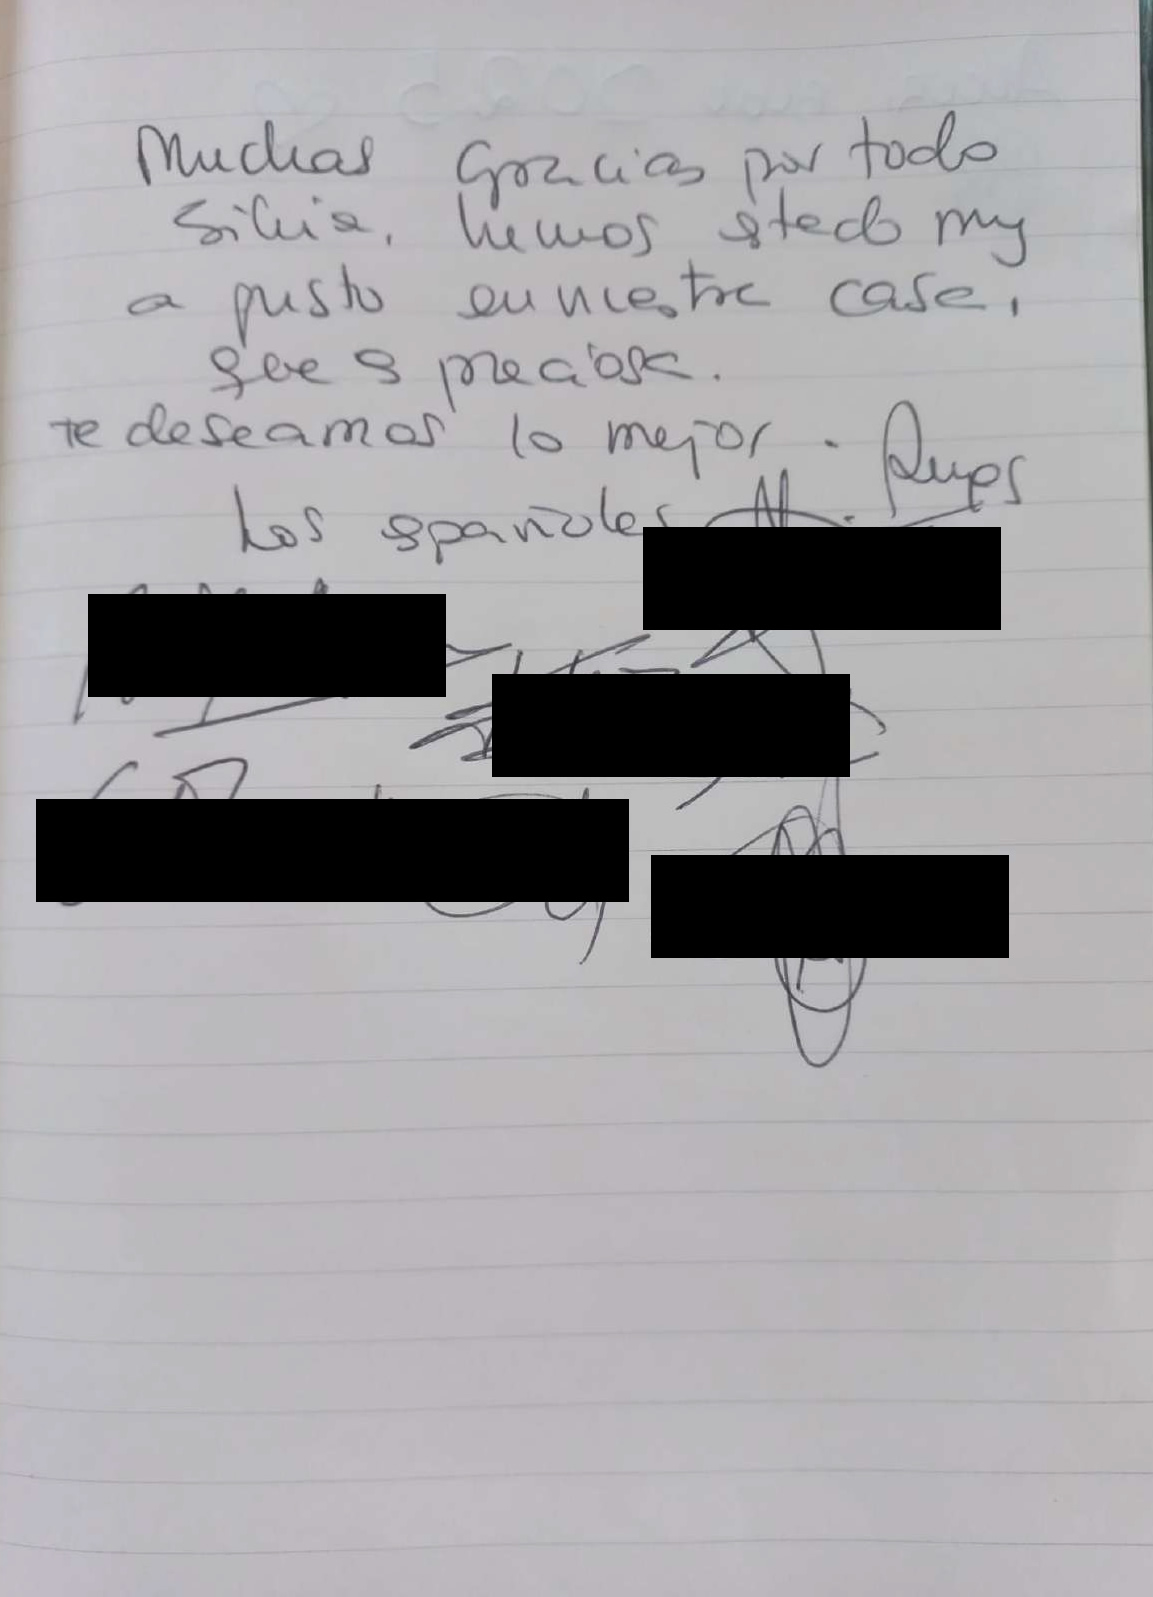 Muchas Gracias por todo
Silvia, hemos estado muy
a gusto en nuestra casa,
que es preciosa.
te deseamos lo mejor.
Los españoles